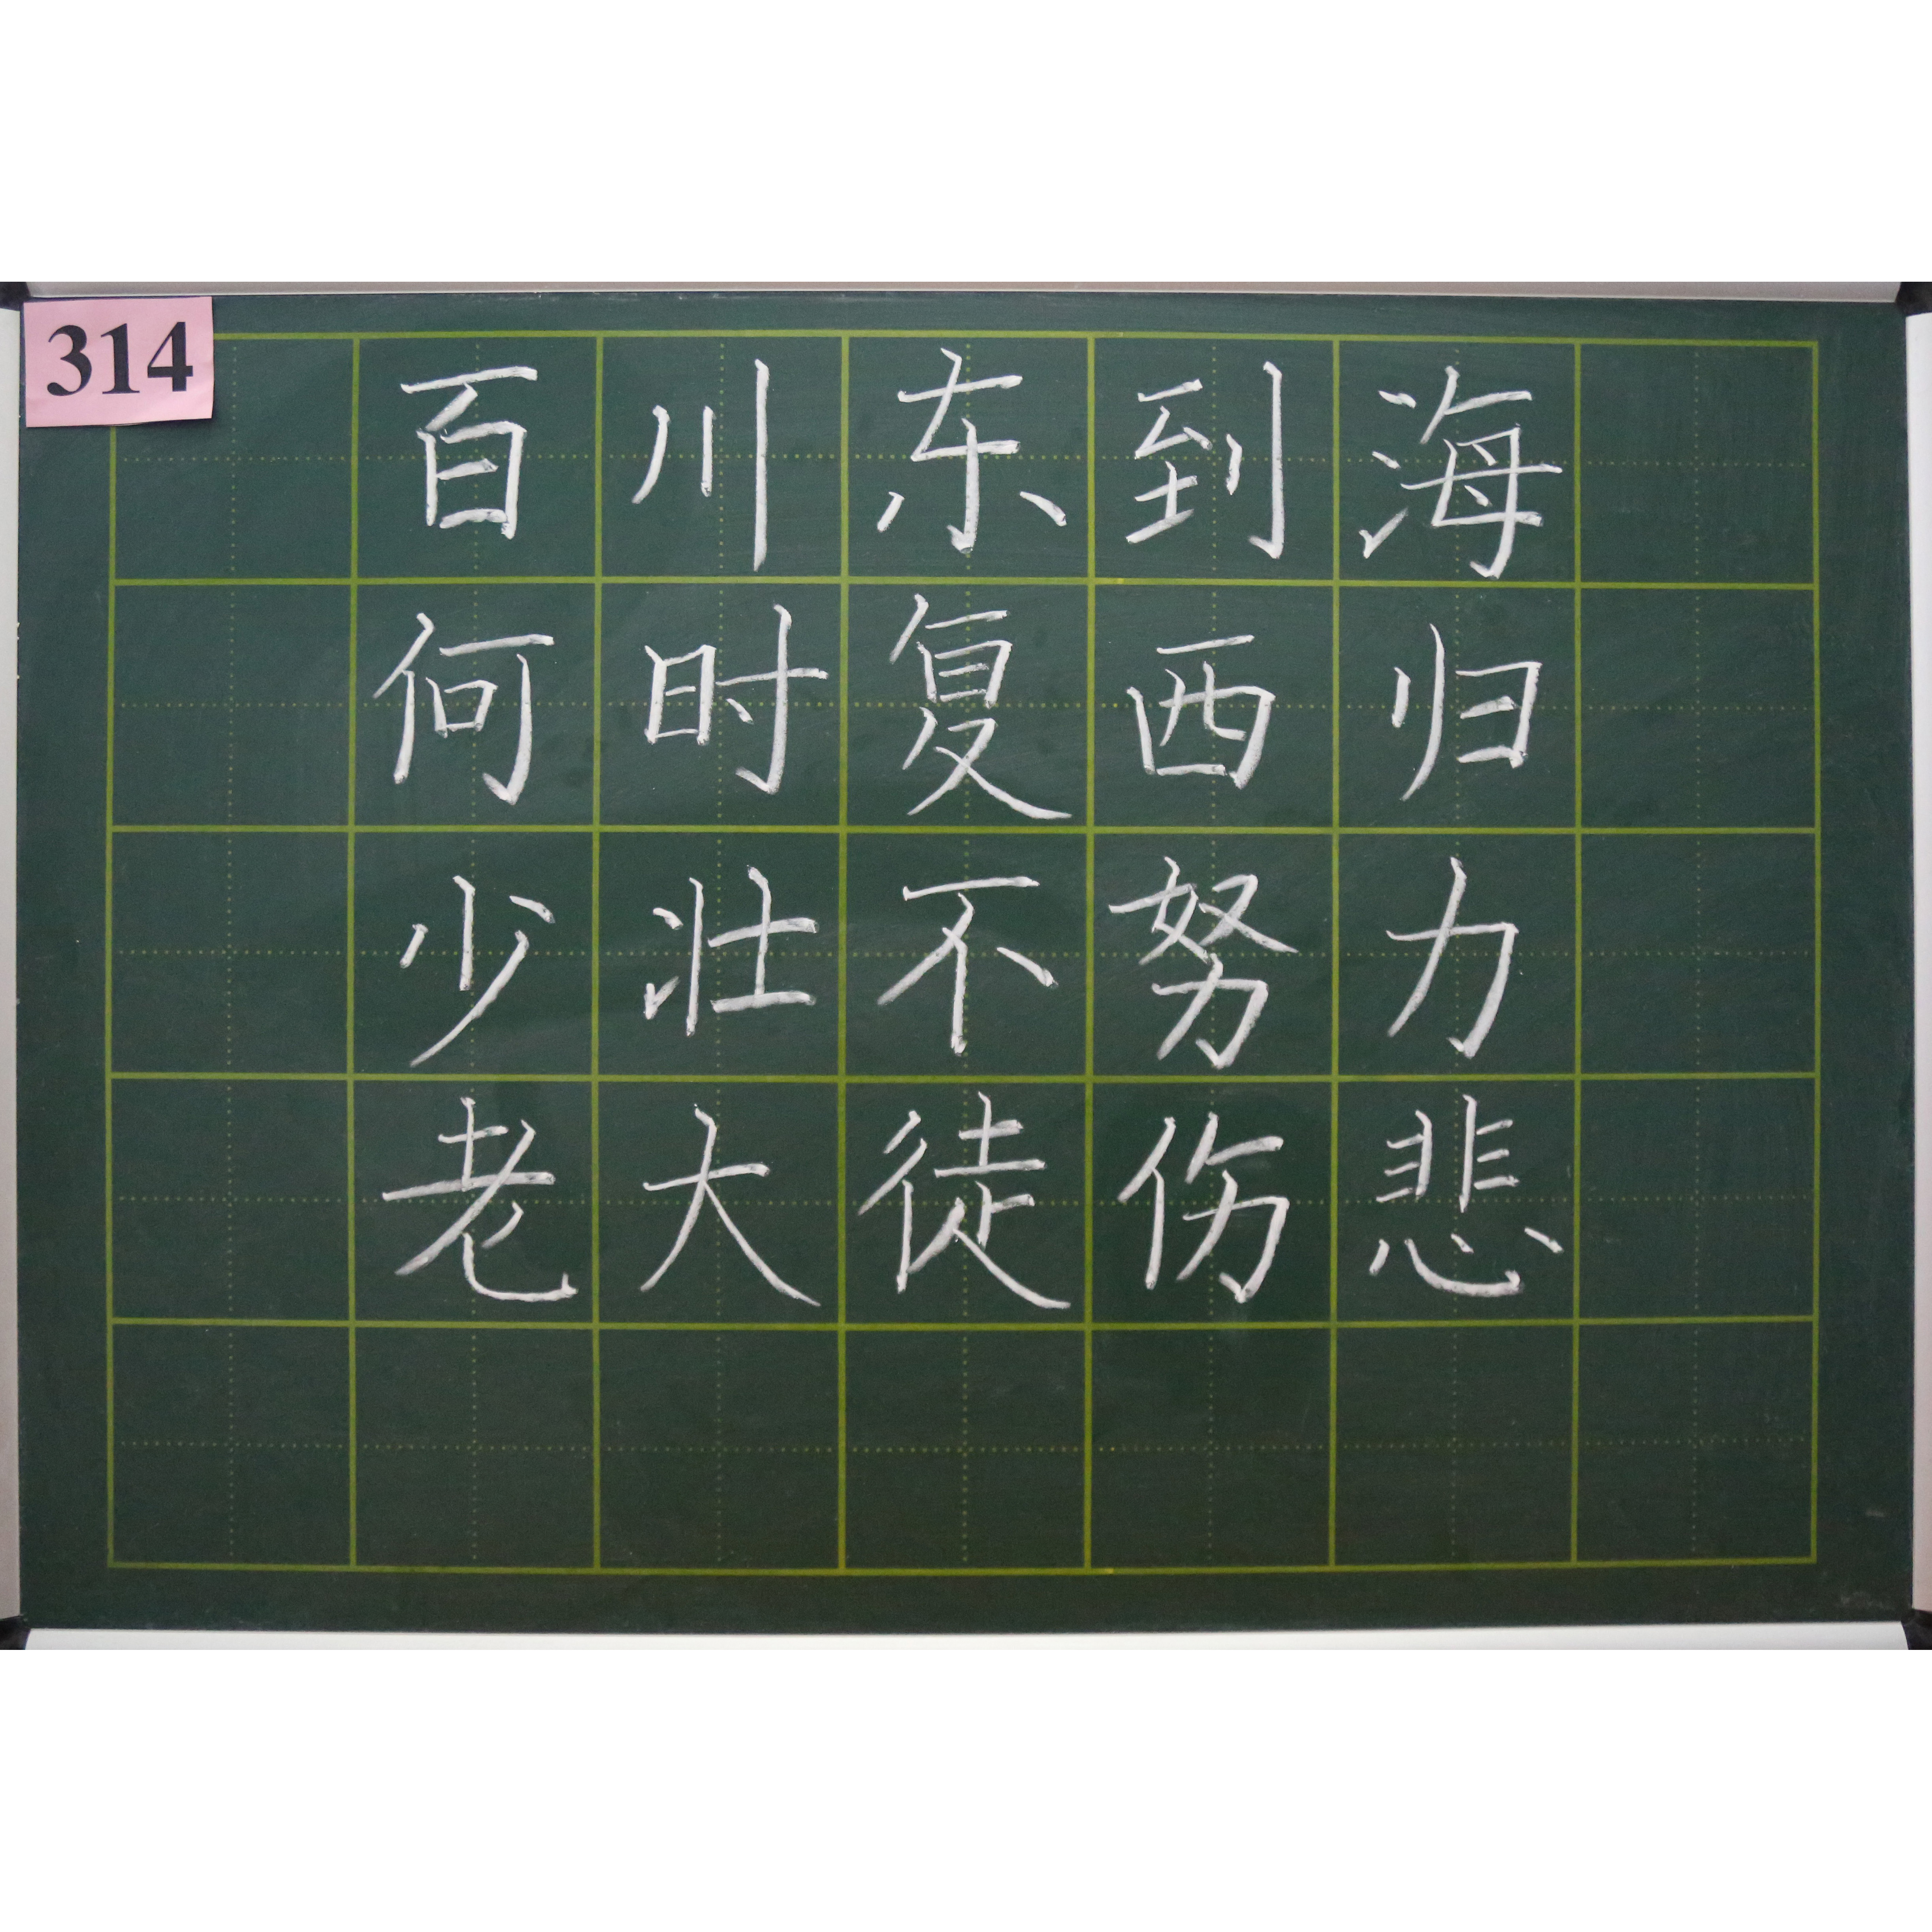 314
百川东到海
何时复西归
少壮不努力
老大徒伤悲